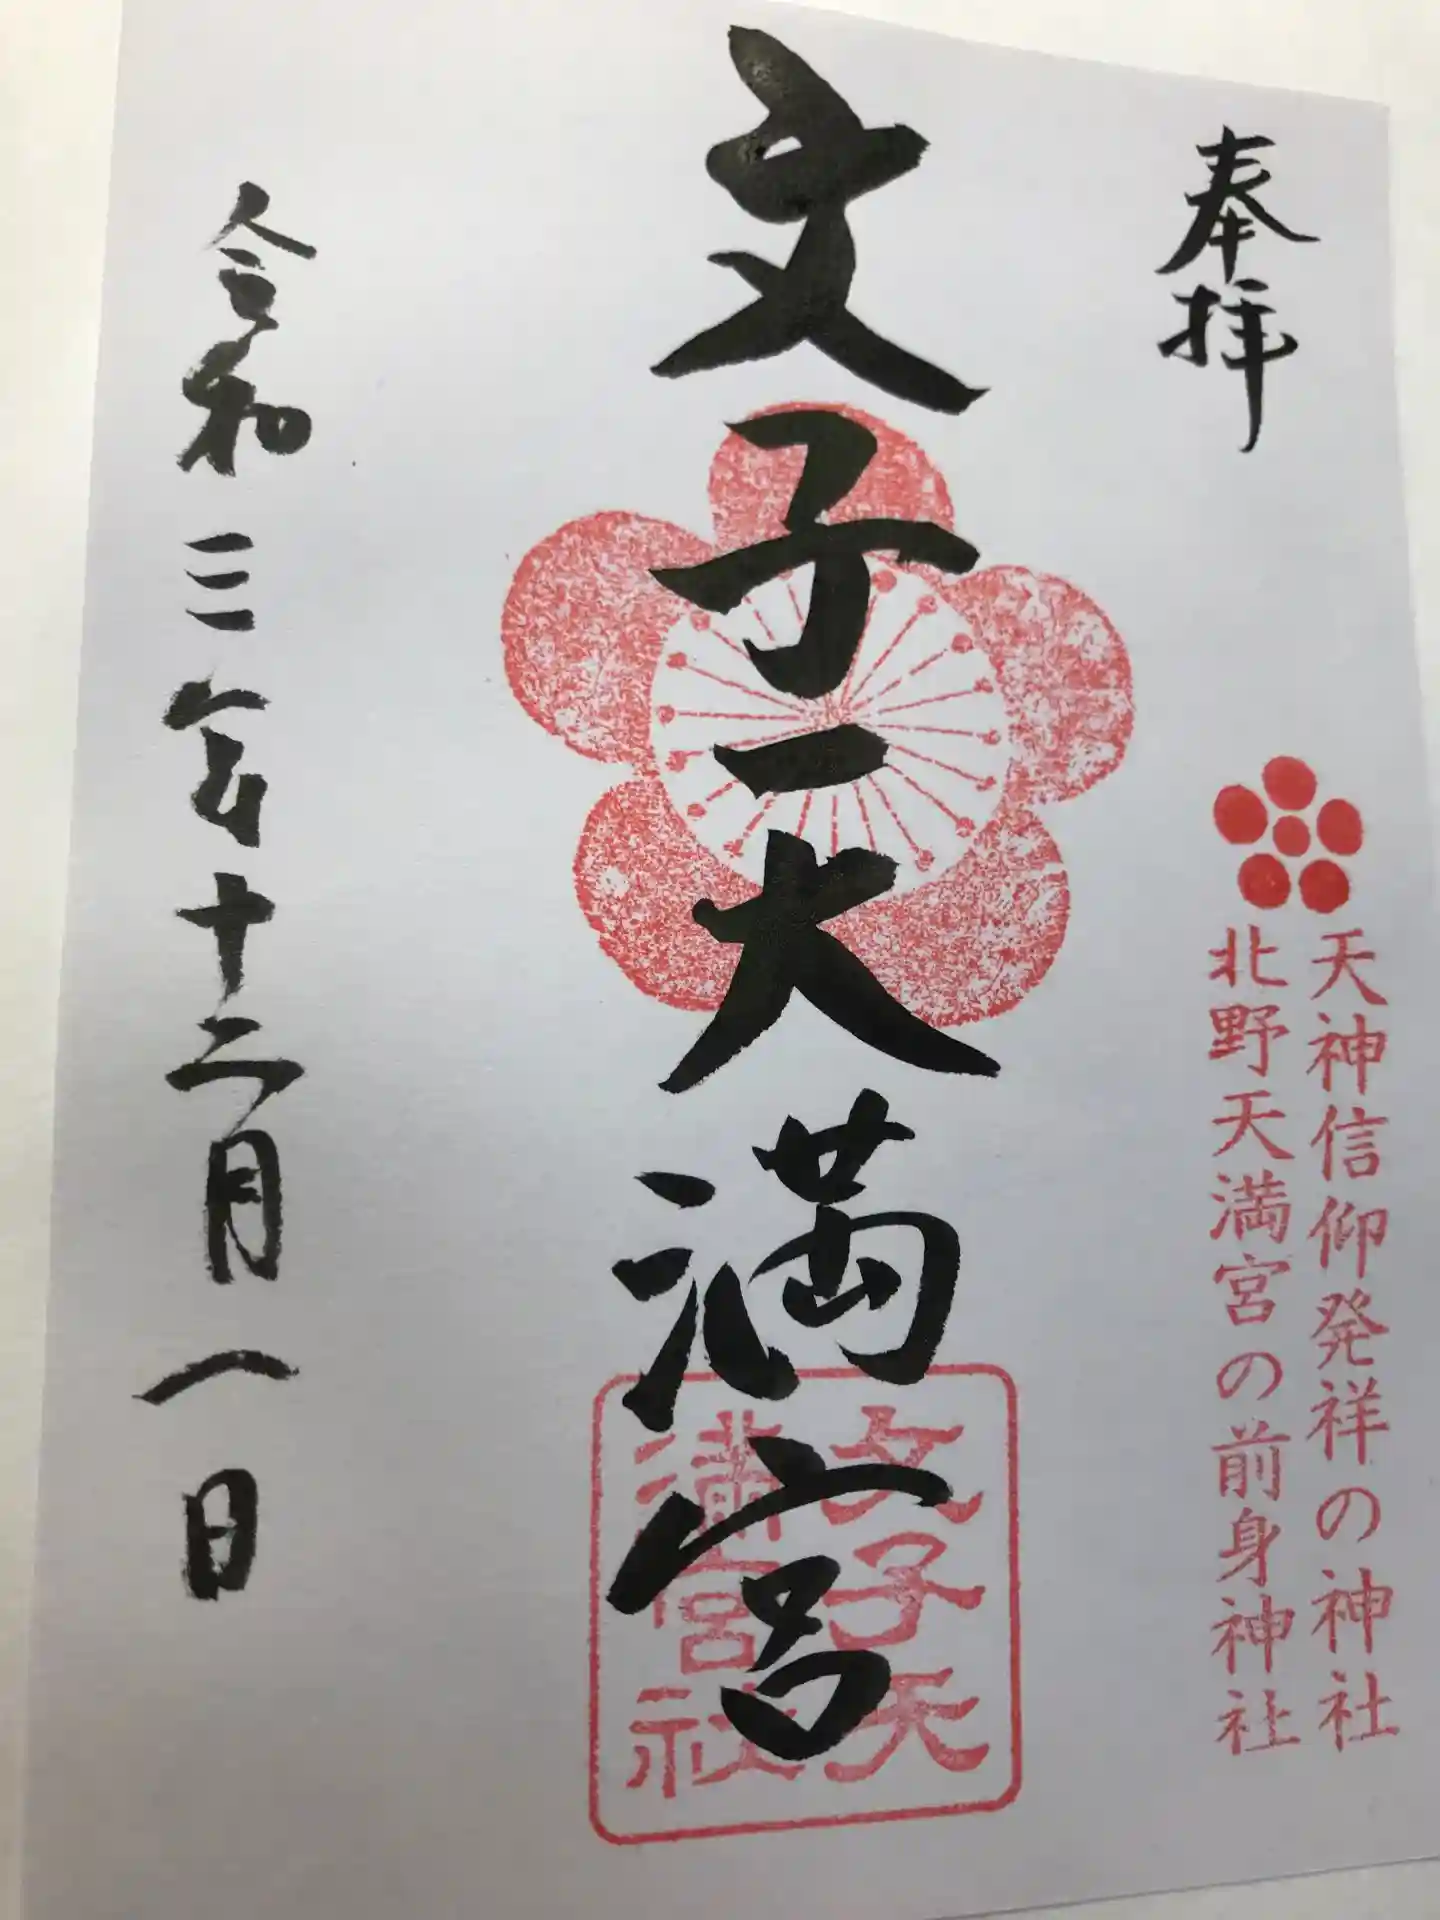 奉拝
天神信仰発祥の神社
北野天満宮の前身神社
文子天満宮
文子天
満宮社
令和三年十二月一日